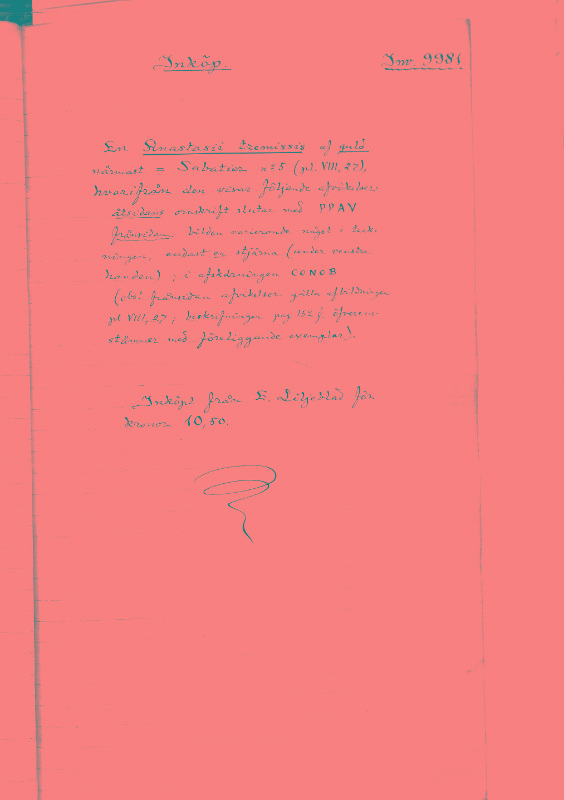 Inköp.
Inv. 9981
En Anastasii tremissis af guld
närmast = Sabatier nº 5 (pl. VIII, 27),
hvarifrån den visar följande afvikelser:
åtsidans omskrift slutar med PPAV
frånsidan bilden varierande något i teck-
ningen, endast en stjärna (under venstra
handen); i afskärningen CONOB
(obs! frånsidan afvikelser gälla afbildningen
pl VIII, 27; beskrifningen pag 152 f. öfverens-
stämmer med föreliggande exemplar).
Inköpt från E. Liljeblad för
kronor 10,50.